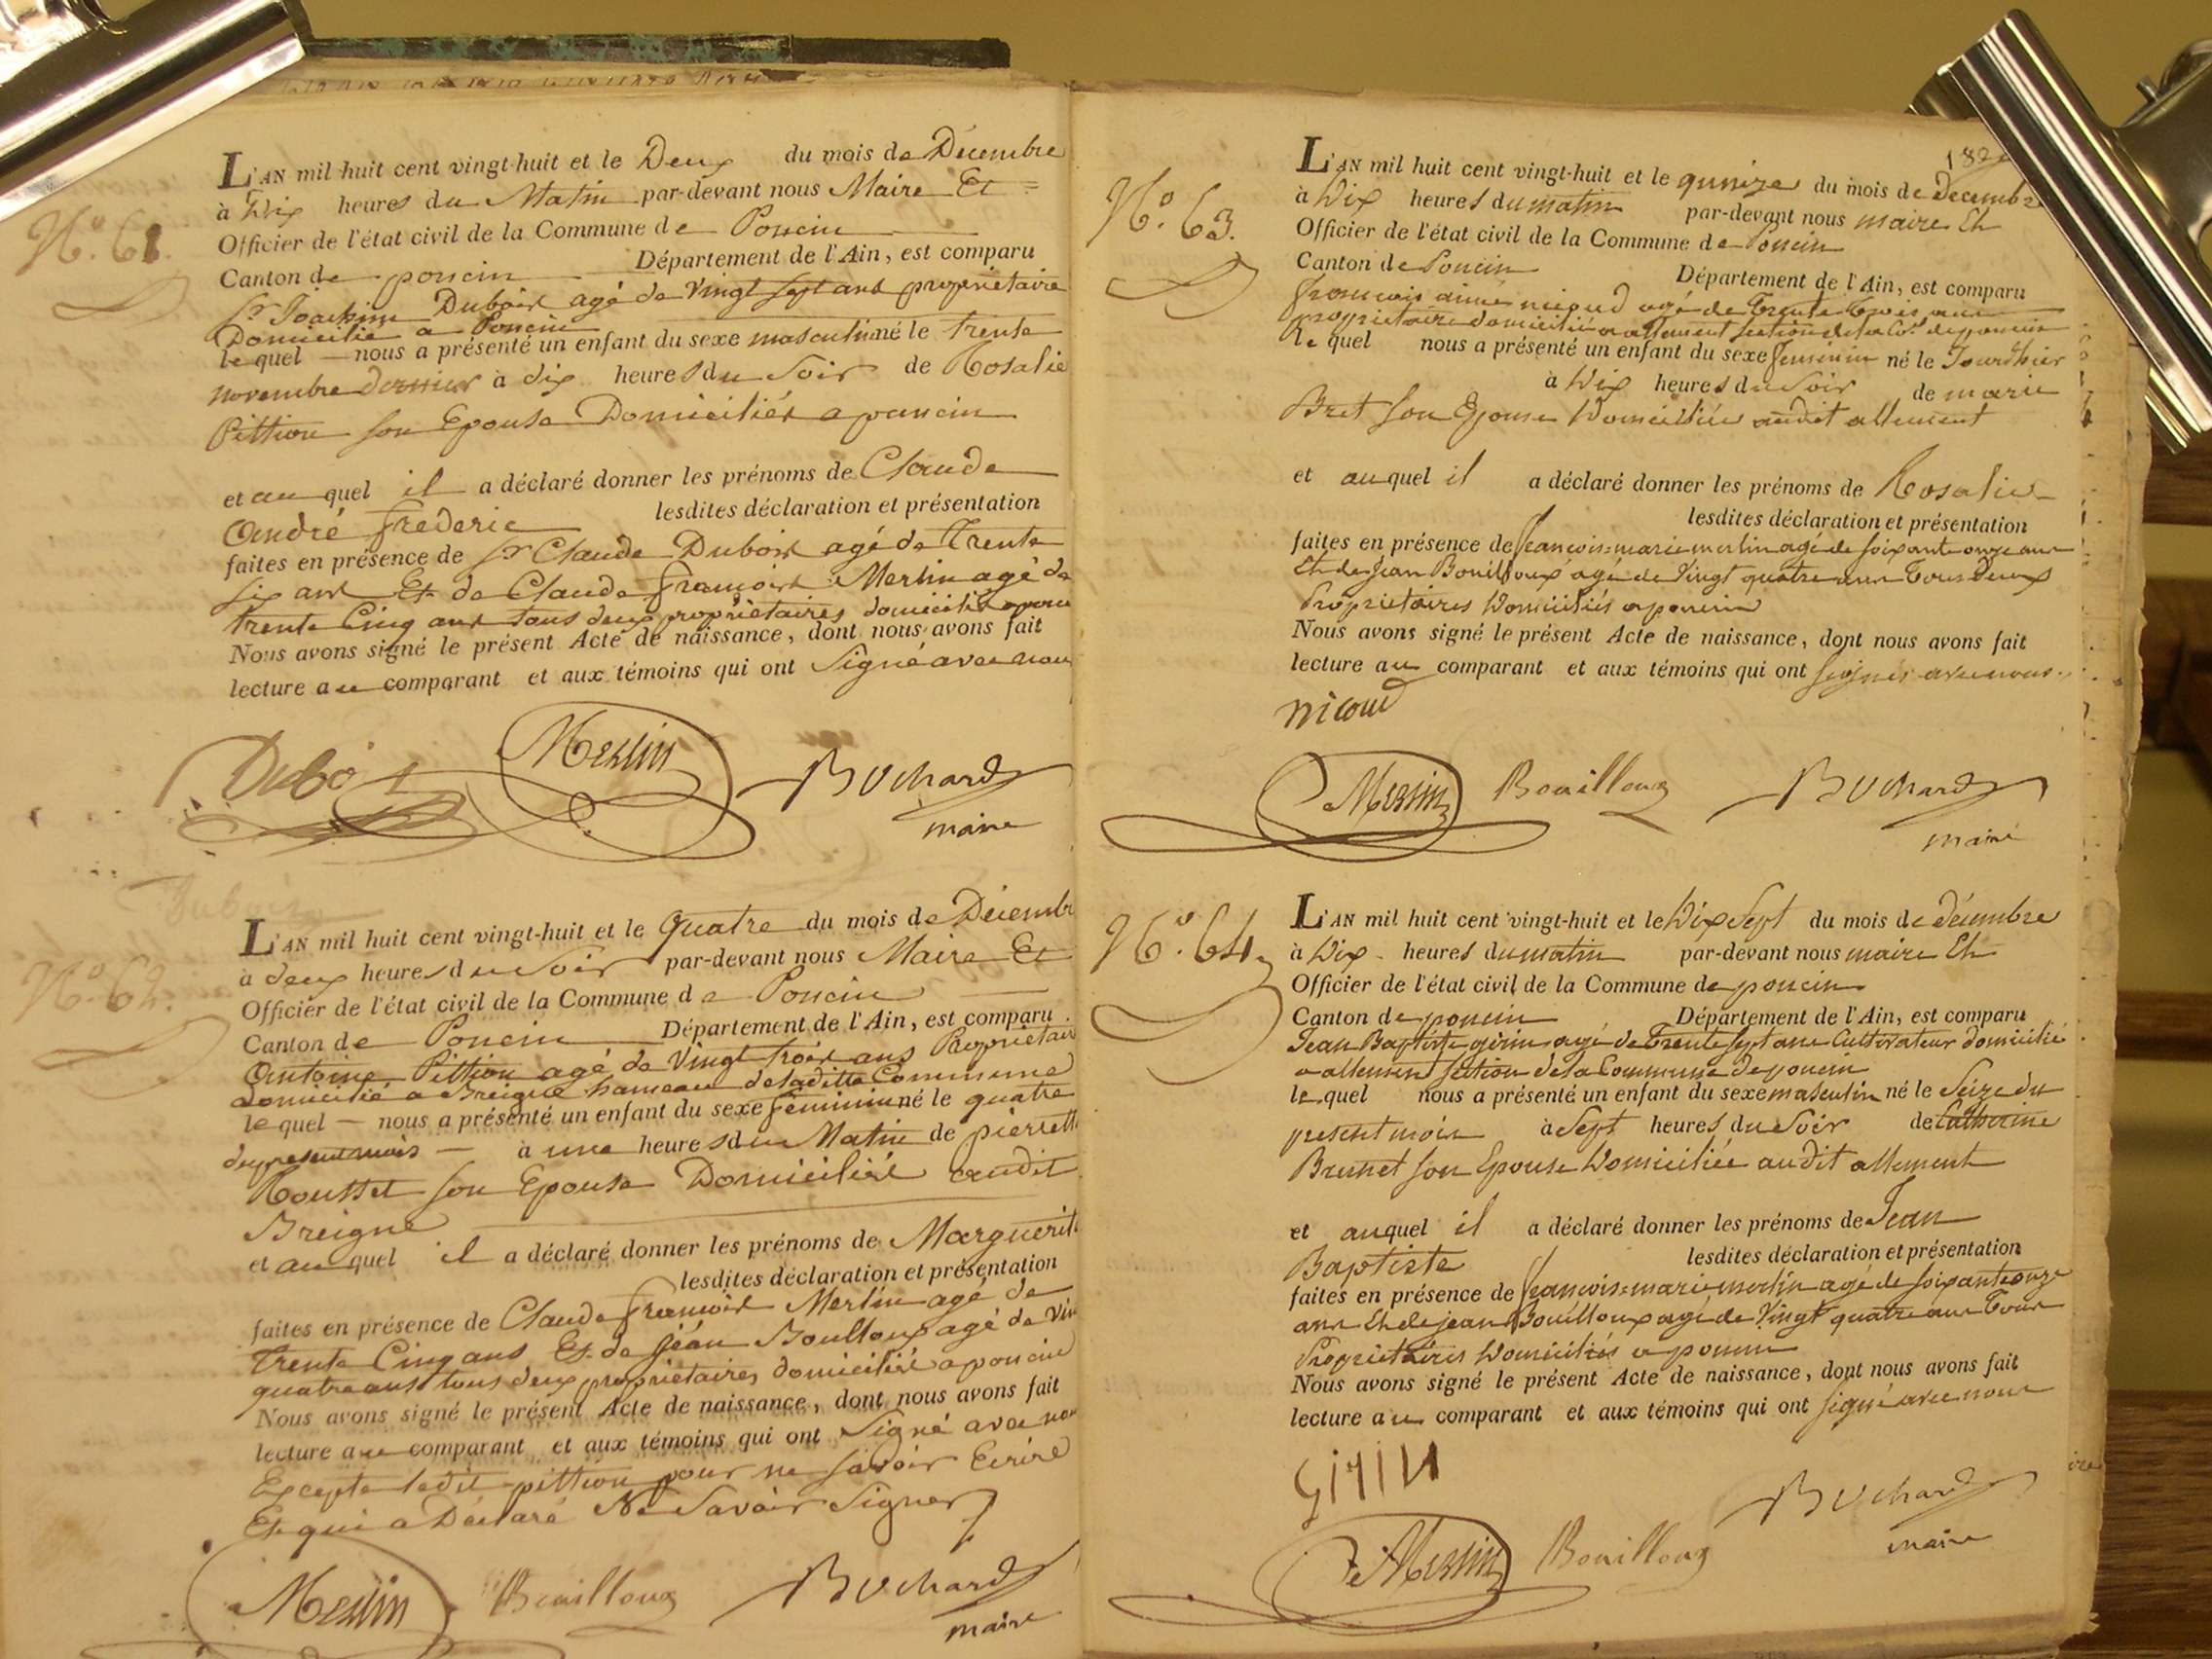 No. 61.
L'AN mil huit cent vingt-huit et le Deux du mois de Décembre
à Dix heures du Matin par-devant nous Maire Et
Officier de l'état civil de la Commune de Poncin
Canton de poncin Département de l'Ain, est comparu
Sr. Joachim Dubois agé de vingt sept ans propriétaire
Domicilié a Poncin
lequel nous a présenté un enfant du sexe masculin né le trente
novembre dernier à dix heures du Soir de Rosalie
Pittion son Epouse Domiciliés a poncin
et au quel il a déclaré donner les prénoms de Claude
André frederic lesdites déclaration et présentation
faites en présence de Sr Claude Dubois agé de Trente
six ans Et de Claude françois Merlin agé de
trente Cinq ans tous deux propriétaires domiciliés a poncin
Nous avons signé le présent Acte de naissance, dont nous avons fait
lecture au comparant et aux témoins qui ont Signé avec nous
Dubois Merlin Buchard
maire
No. 62.
L'AN mil huit cent vingt-huit et le Quatre du mois de Décembr
à deux heures du Soir par-devant nous Maire Et
Officier de l'état civil de la Commune de Poncin
Canton de Poncin Département de l'Ain, est comparu
Antoine Pittion agé de Vingt trois ans Propriétair
domicilié a Breigne hameau de la ditte Commune
lequel nous a présenté un enfant du sexe féminin né le quatre
du present mois à une heures du Matin de pierrett
Rousset son Epouse Domiciliés audit
Breigne
et au quel il a déclaré donner les prénoms de Marguerit
lesdites déclaration et présentation
faites en présence de Claude françois Merlin agé de
Trente Cinq ans Et de jean Boulloux agé de Vin
quatre ans tous deux propriétaires domiciliés a poncin
Nous avons signé le présent Acte de naissance, dont nous avons fait
lecture au comparant et aux témoins qui ont Signé avec nou
Excepté ledit pittion pour ne savoir Ecrire
Et qui a Déclaré Ne Savoir Signer
Merlin Bouilloux Buchard
maire
No. 63.
L'AN mil huit cent vingt-huit et le quinize du mois de décembre
à Dix heures du matin par-devant nous maire Et
Officier de l'état civil de la Commune de Poncin
Canton de Poncin Département de l'Ain, est comparu
francois aimé nicoud agé de Trente trois ans
propriétaire domicilié a allement section de la Co. de poncin
le quel nous a présenté un enfant du sexe feminin né le Jourdhier
à Dix heures du soir de marie
Bret son Epouse Domiciliée audit allement
et auquel il a déclaré donner les prénoms de Rosalie
lesdites déclaration et présentation
faites en présence de françois=marie merlin agé de soixante onze ans
Et de Jean Bouilloux agé de Vingt quatre ans Tous Deux
Propriétaires Domiciliés a poncin
Nous avons signé le présent Acte de naissance, dont nous avons fait
lecture au comparant et aux témoins qui ont signés avec nous.
nicoud
Merlin Bouilloux Buchard
maire
No. 64
L'AN mil huit cent vingt-huit et le Dix Sept du mois de décembre
à Dix heures du matin par-devant nous maire Et
Officier de l'état civil de la Commune de poncin
Canton de poncin Département de l'Ain, est comparu
Jean Baptiste girin agé de Trente sept ans Cultivateur domicilié
a allement section de la Commune de poncin
lequel nous a présenté un enfant du sexe masculin né le Seize du
present mois à Sept heures du Soir de Catherine
Brunet son Epouse Domiciliée audit allement
et auquel il a déclaré donner les prénoms de Jean
Baptiste lesdites déclaration et présentation
faites en présence de françois=marie merlin agé de soixante onze
ans Et de jean Bouilloux agé de Vingt quatre ans Tous
Propriétaires Domiciliés a poncin
Nous avons signé le présent Acte de naissance, dont nous avons fait
lecture au comparant et aux témoins qui ont signé avec nous
girin
Merlin Bouilloux Buchard
maire